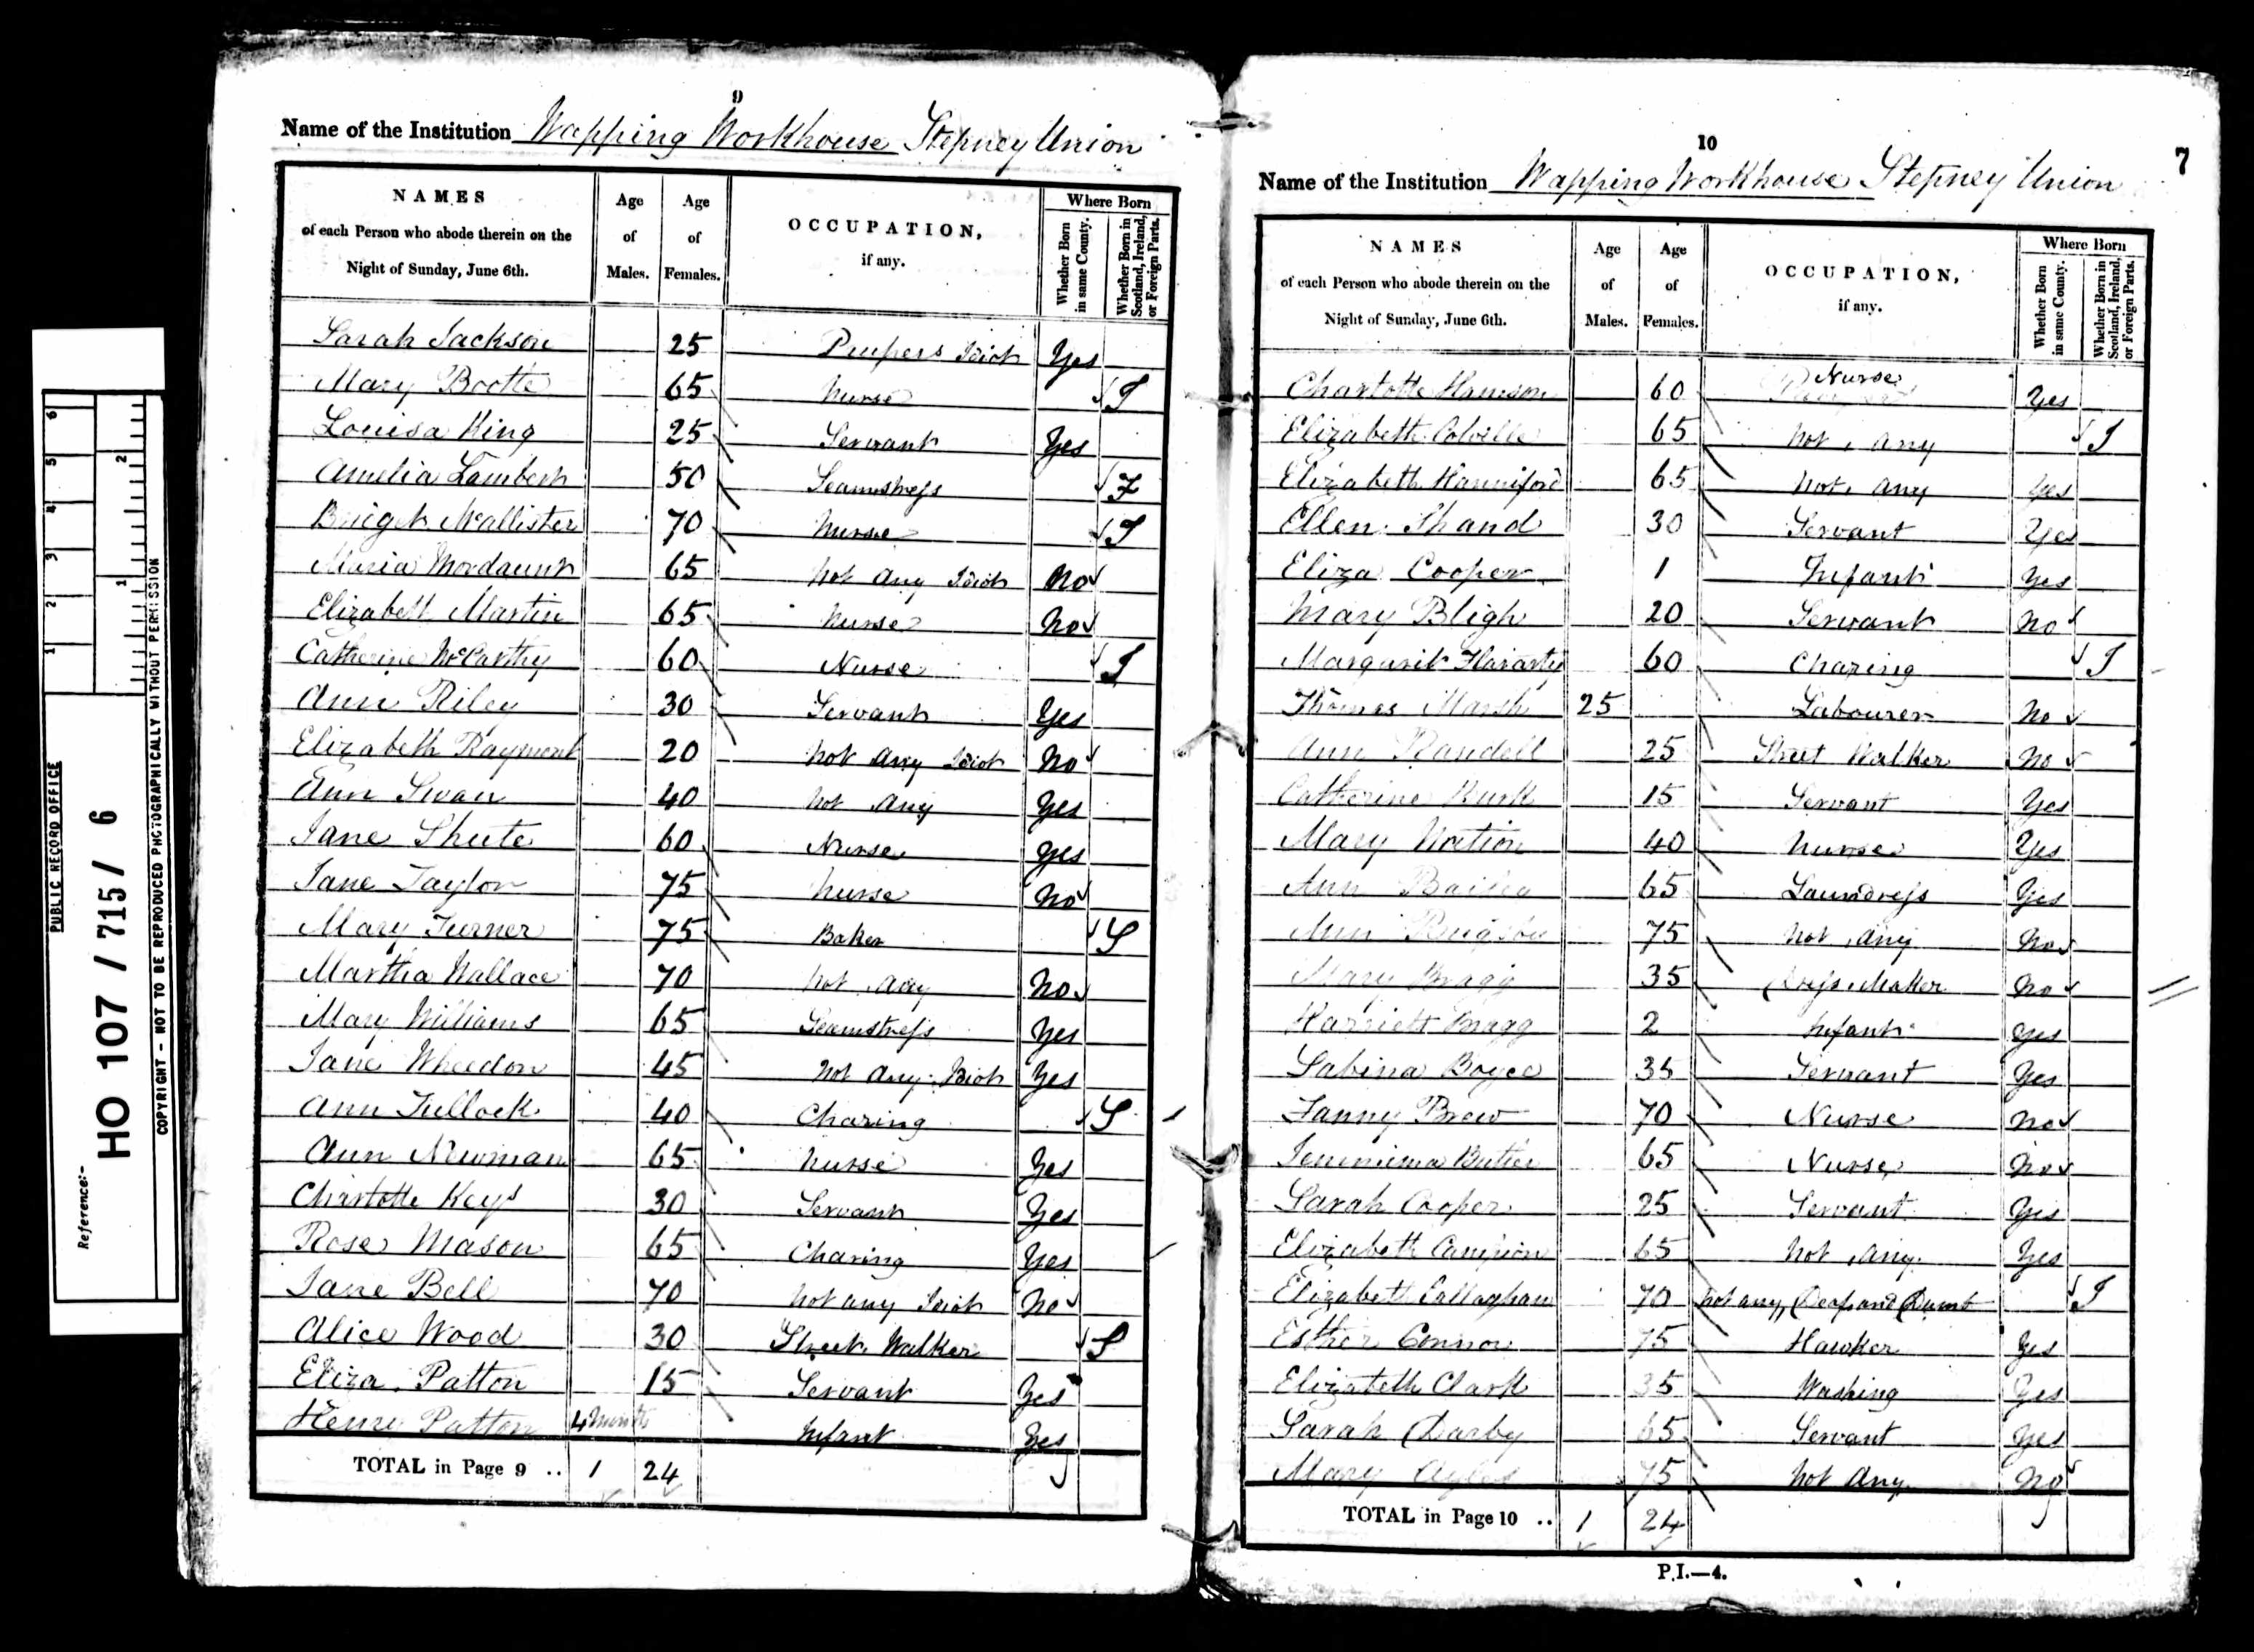 PUBLIC RECORD OFFICE
Reference:-
HO 107 / 715 / 6
COPYRIGHT - NOT TO BE REPRODUCED PHOTOGRAPHICALLY WITHOUT PERMISSION
9
Name of the Institution Wapping Workhouse Stepney Union
NAMES of each Person who abode therein on the Night of Sunday, June 6th. Age of Males. Age of Females. OCCUPATION, if any. Where Born Whether Born in same County. Whether Born in Scotland, Ireland, or Foreign Parts.
Sarah Jackson 25 Idiot Yes
Mary Bootte 65 Nurse I
Louisa King 25 Servant Yes
Amelia Lambert 50 Seamstress F
Bridget McAllister 70 Nurse I
Maria Mordaunt 65 Not Any Idiot No
Elizabeth Martin 65 Nurse No
Catherine McCarthy 60 Nurse I
Ann Riley 30 Servant Yes
Elizabeth Rayment 20 Not Any Idiot No
Ann Swan 40 Not Any Yes
Jane Shute 60 Nurse Yes
Jane Taylor 75 Nurse No
Mary Turner 75 Baker S
Martha Wallace 70 Not Any No
Mary Williams 65 Seamstress Yes
Jane Wheedon 45 Not Any Idiot Yes
Ann Tullock 40 Charing S
Ann Newman 65 Nurse Yes
Charlotte Keys 30 Servant Yes
Rose Mason 65 Charing Yes
Jane Bell 70 Not any Idiot No
Alice Wood 30 Street Walker S
Eliza Patton 15 Servant Yes
Henry Patton 4 Months Infant Yes
TOTAL in Page 9 .. 1 24
10
7
Name of the Institution Wapping Workhouse Stepney Union
NAMES of each Person who abode therein on the Night of Sunday, June 6th. Age of Males. Age of Females. OCCUPATION, if any. Where Born Whether Born in same County. Whether Born in Scotland, Ireland, or Foreign Parts.
Charlotte 60 Nurse Yes
Elizabeth Colville 65 Not Any I
Elizabeth Hanniford 65 Not Any Yes
Ellen Shand 30 Servant Yes
Eliza Cooper 1 Infant Yes
Mary Bligh 20 Servant No
Margarit 60 Charing I
Thomas Marsh 25 Labourer No
Ann Randell 25 Street Walker No
Catherine Kurk 15 Servant Yes
Mary Nation 40 Nurse Yes
Ann 65 Laundress Yes
Ann 75 Not Any No
Mary Bragg 35 Dress Maker No
Harriett Bragg 2 Infant Yes
Sabina Boyce 35 Servant Yes
Fanny Brew 70 Nurse No
Jemmima Butler 65 Nurse No
Sarah Cooper 25 Servant Yes
Elizabeth Campion 65 Not Any Yes
Elizabeth Callaghan 70 Not any, Deaf and Dumb I
Esther Connor 75 Hawker Yes
Elizabeth Clark 35 Washing Yes
Sarah Darby 65 Servant Yes
Mary 75 Not Any No
TOTAL in Page 10 .. 1 24
P.I.—4.